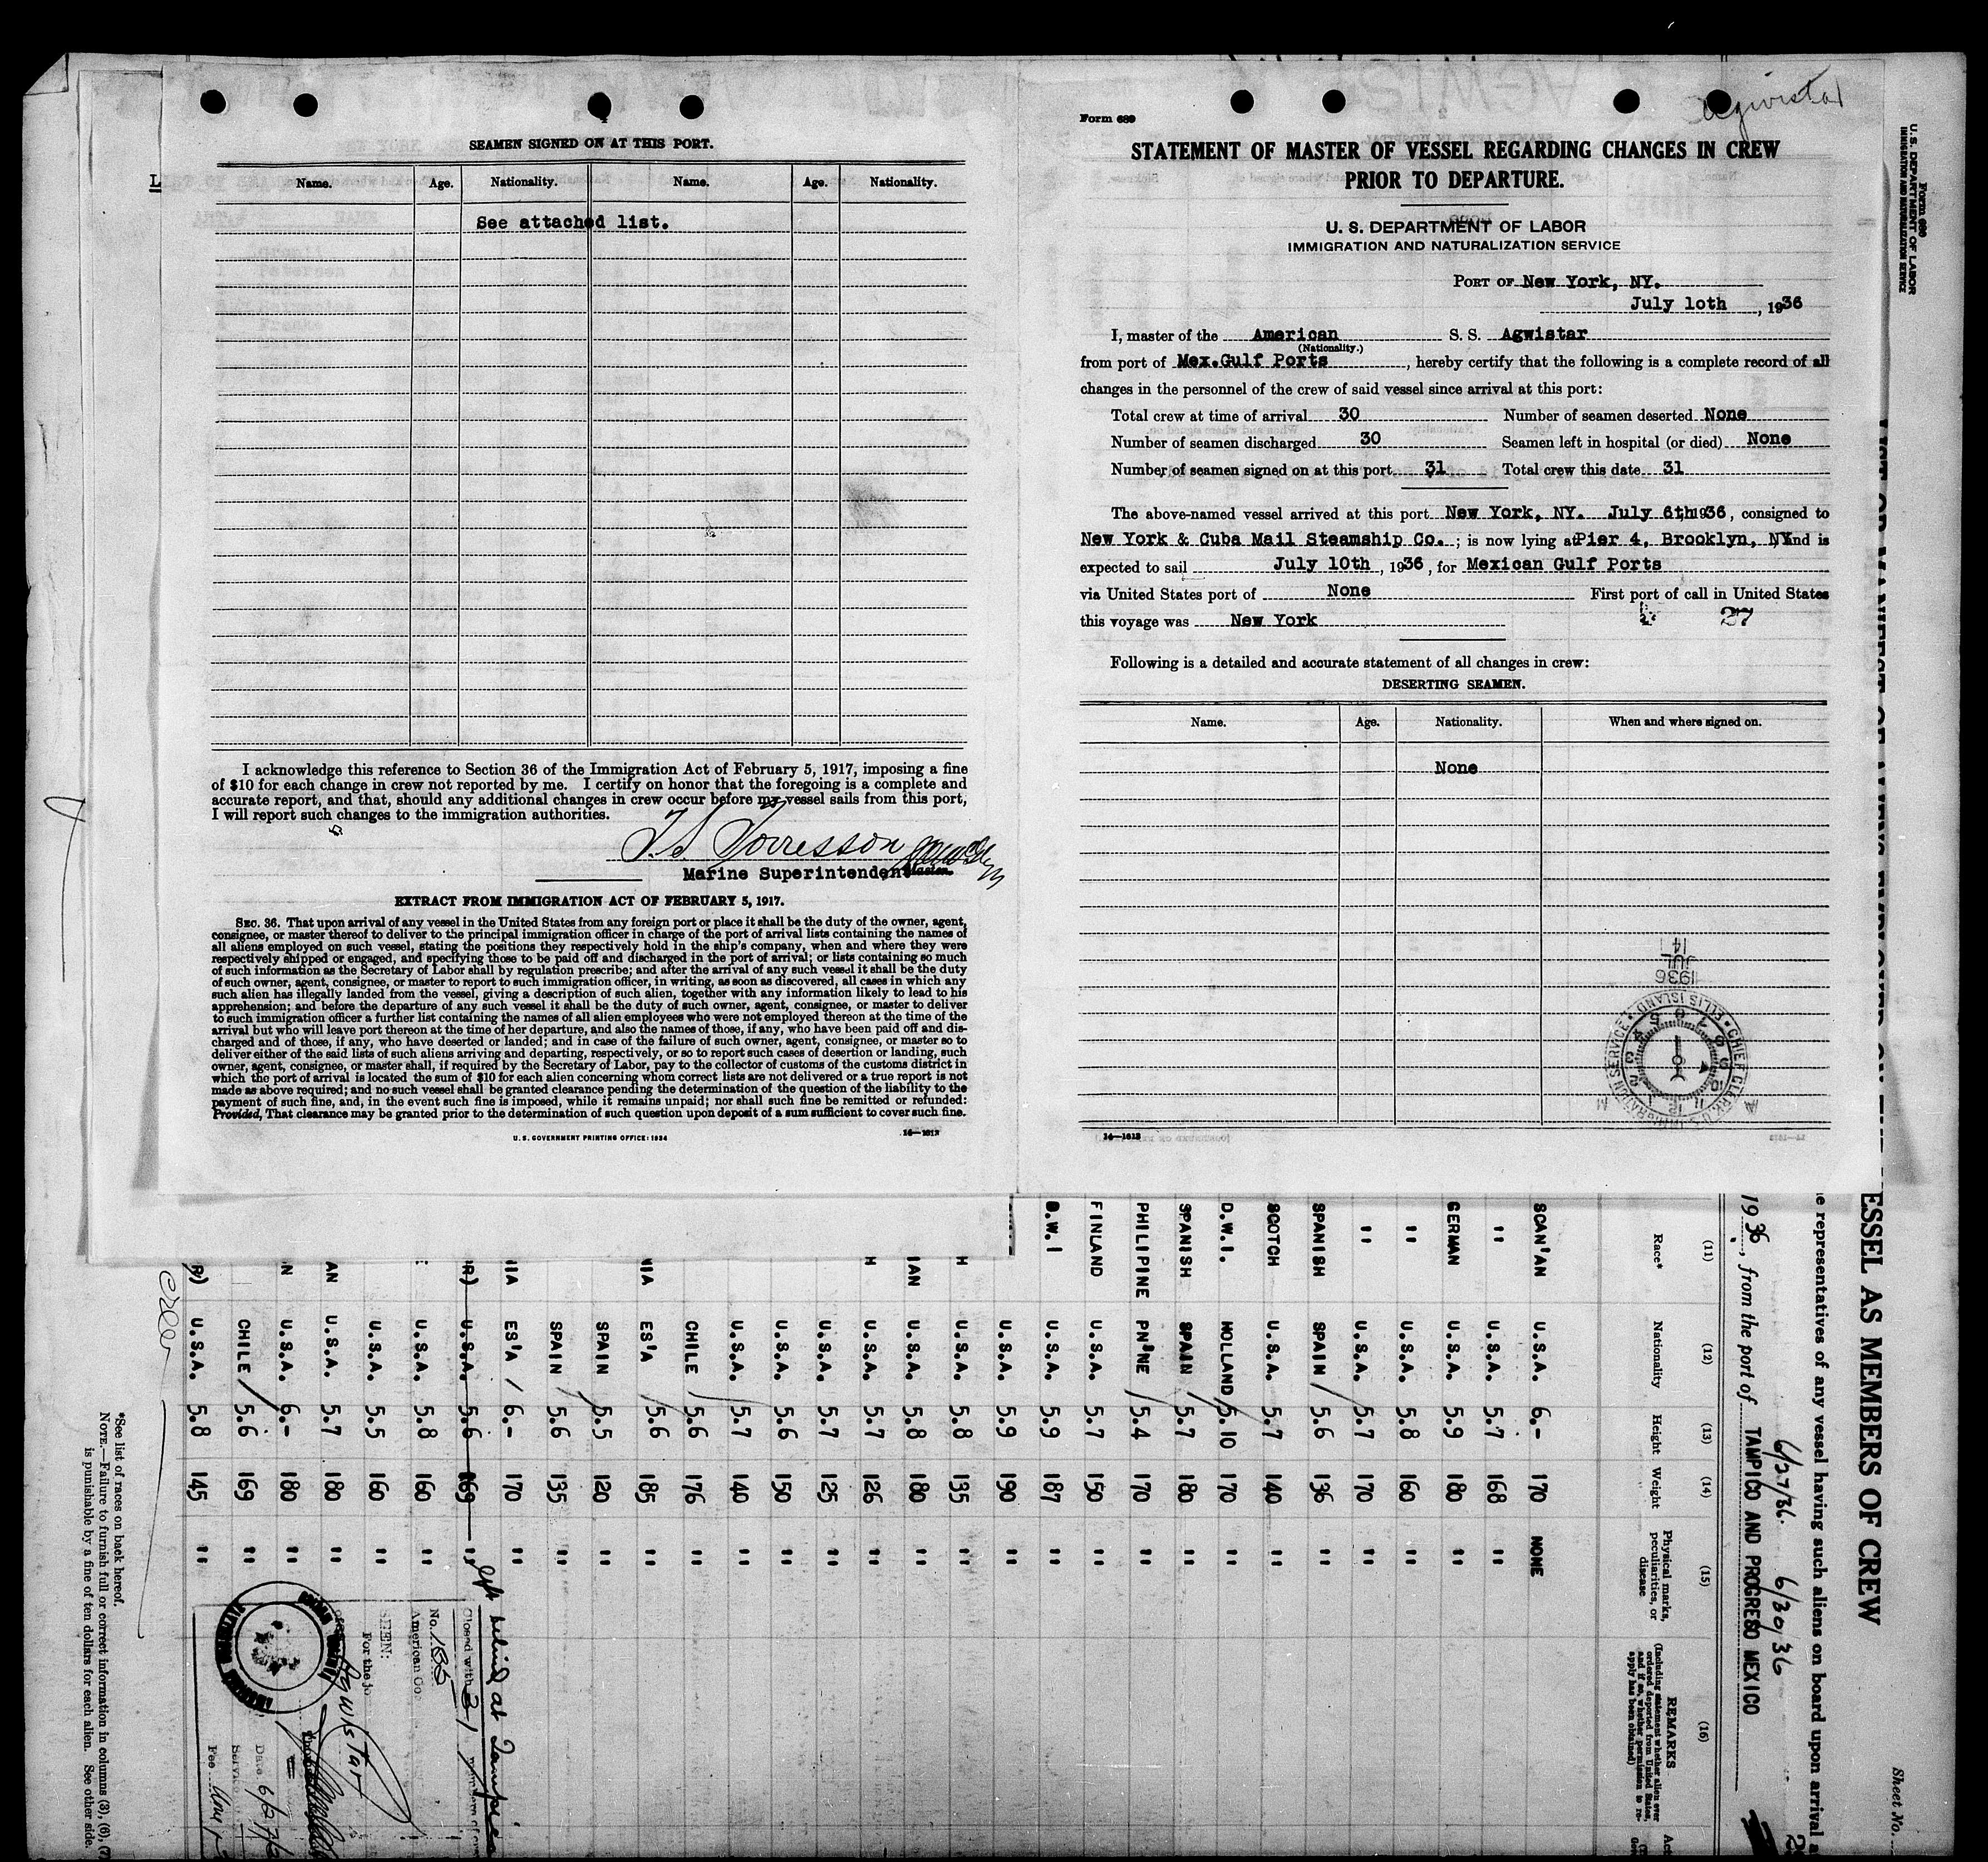 SEAMEN SIGNED ON AT THIS PORT.
Name. Age. Nationality. Name. Age. Nationality.
See attached list.
I acknowledge this reference to Section 36 of the Immigration Act of February 5, 1917, imposing a fine
of $10 for each change in crew not reported by me. I certify on honor that the foregoing is a complete and
accurate report, and that, should any additional changes in crew occur before my vessel sails from this port,
I will report such changes to the immigration authorities.
Torresson
Marine Superintendent
EXTRACT FROM IMMIGRATION ACT OF FEBRUARY 5, 1917.
SEC. 36. That upon arrival of any vessel in the United States from any foreign port or place it shall be the duty of the owner, agent,
consignee, or master thereof to deliver to the principal immigration officer in charge of the port of arrival lists containing the names of
all aliens employed on such vessel, stating the positions they respectively hold in the ship's company, when and where they were
respectively shipped or engaged, and specifying those to be paid off and discharged in the port of arrival; or lists containing so much
of such information as the Secretary of Labor shall by regulation prescribe; and after the arrival of any such vessel it shall be the duty
of such owner, agent, consignee, or master to report to such immigration officer, in writing, as soon as discovered, all cases in which any
such alien has illegally landed from the vessel, giving a description of such alien, together with any information likely to lead to his
apprehension; and before the departure of any such vessel it shall be the duty of such owner, agent, consignee, or master to deliver
to such immigration officer a further list containing the names of all alien employees who were not employed thereon at the time of the
arrival but who will leave port thereon at the time of her departure, and also the names of those, if any, who have been paid off and dis-
charged and of those, if any, who have deserted or landed; and in case of the failure of such owner, agent, consignee, or master so to
deliver either of the said lists of such aliens arriving and departing, respectively, or so to report such cases of desertion or landing, such
owner, agent, consignee, or master shall, if required by the Secretary of Labor, pay to the collector of customs of the customs district in
which the port of arrival is located the sum of $10 for each alien concerning whom correct lists are not delivered or a true report is not
made as above required; and no such vessel shall be granted clearance pending the determination of the question of the liability to the
payment of such fine, and, in the event such fine is imposed, while it remains unpaid; nor shall such fine be remitted or refunded:
Provided, That clearance may be granted prior to the determination of such question upon deposit of a sum sufficient to cover such fine.
U. S. GOVERNMENT PRINTING OFFICE: 1934
Agwistar
Form 689
STATEMENT OF MASTER OF VESSEL REGARDING CHANGES IN CREW
PRIOR TO DEPARTURE.
U. S. DEPARTMENT OF LABOR
IMMIGRATION AND NATURALIZATION SERVICE
PORT OF New York, NY.
July 10th, 1936
I, master of the American S. S. Agwistar
(Nationality.)
from port of Mex.Gulf Ports, hereby certify that the following is a complete record of all
changes in the personnel of the crew of said vessel since arrival at this port:
Total crew at time of arrival 30 Number of seamen deserted None
Number of seamen discharged 30 Seamen left in hospital (or died) None
Number of seamen signed on at this port 31 Total crew this date 31
The above-named vessel arrived at this port New York, NY. July 6th 1936, consigned to
New York & Cuba Mail Steamship Co. ; is now lying at Pier 4, Brooklyn, NY and is
expected to sail July 10th, 1936, for Mexican Gulf Ports
via United States port of None First port of call in United States
this voyage was New York 27
Following is a detailed and accurate statement of all changes in crew:
DESERTING SEAMEN.
Name. Age. Nationality. When and where signed on.
None
JUL 14 1936
CHIEF CLERK, U.S. IMMIGRATION SERVICE ELLIS ISLAND
16—1612
Form 689
U. S. DEPARTMENT OF LABOR
IMMIGRATION AND NATURALIZATION SERVICE
ESSEL AS MEMBERS OF CREW
Sheet No.
representatives of any vessel having such aliens on board upon arrival
6/27/36. 6/30/36
1936, from the port of TAMPICO AND PROGRESO MEXICO
(11) (12) (13) (14) (15) (16)
Race* Nationality Height Weight Physical marks, peculiarities, or disease REMARKS
(Including statement whether alien ever ordered deported from United States, and if so, whether permission to re-apply has been obtained)
SCAN'AN U.S.A. 6.- 170 NONE
" U.S.A. 5.7 168 "
GERMAN U.S.A. 5.9 180 "
" U.S.A. 5.8 160 "
" U.S.A. 5.7 170 "
SPANISH SPAIN 5.6 136 "
SCOTCH U.S.A. 5.7 140 "
D.W.I. HOLLAND 5.10 170 "
SPANISH SPAIN 5.7 180 "
PHILIPINE PN'NE 5.4 170 "
FINLAND U.S.A. 5.7 150 "
B.W.I U.S.A. 5.9 187 "
U.S.A. 5.9 190 "
H U.S.A. 5.8 135 "
IAN U.S.A. 5.8 180 "
H U.S.A. 5.7 126 "
U.S.A. 5.7 125 "
U.S.A. 5.6 150 "
U.S.A. 5.7 140 "
CHILE 5.6 176 "
NIA ES'A 5.6 185 "
SPAIN 5.5 120 "
SPAIN 5.6 135 "
NIA ES'A 6.- 170 "
R) U.S.A. 5.6 169 " left behind at Tampico
U.S.A. 5.8 160 "
U.S.A. 5.5 160 "
AN U.S.A. 5.7 180 "
N U.S.A. 6.- 180 "
CHILE 5.6 169 "
R) U.S.A. 5.8 145 "
Closed with 31 members of
No. 185
American Co
SEEN:
For the jo
Agwistar
Date 6/27/
Service
Fee
*See list of races on back hereof.
NOTE.—Failure to furnish full or correct information in columns (3), (6), (7)
is punishable by a fine of ten dollars for each alien. See other side.